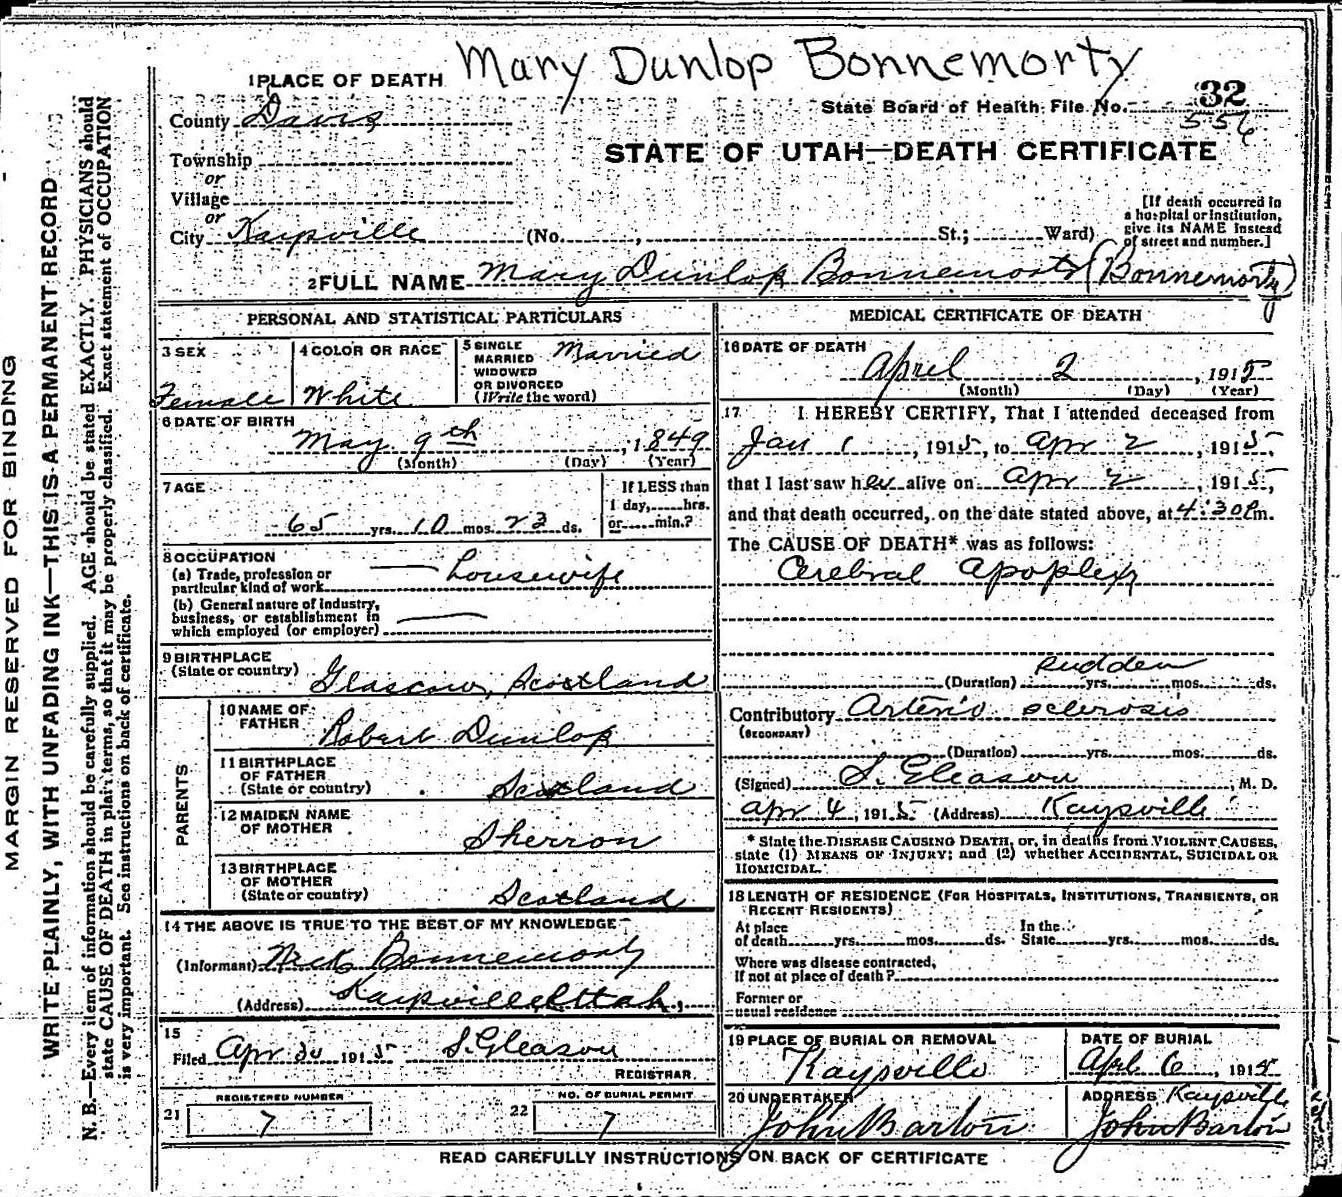 Mary Dunlop Bonnemorty
1 PLACE OF DEATH
State Board of Health File No. 32
556
County Davis
STATE OF UTAH—DEATH CERTIFICATE
Township
or
Village
or
City Kaysville (No. , St.; Ward)
[If death occurred in a hospital or institution, give its NAME instead of street and number.]
2 FULL NAME Mary Dunlop Bonnemorty (Bonnemorty)
PERSONAL AND STATISTICAL PARTICULARS
3 SEX Female
4 COLOR OR RACE White
5 SINGLE MARRIED WIDOWED OR DIVORCED (Write the word) Married
6 DATE OF BIRTH
May 9th, 1849
(Month) (Day) (Year)
7 AGE
65 yrs. 10 mos. 23 ds.
If LESS than 1 day, hrs. or min.?
8 OCCUPATION
(a) Trade, profession or particular kind of work housewife
(b) General nature of industry, business, or establishment in which employed (or employer) —
9 BIRTHPLACE
(State or country) Glascow, Scottland
PARENTS
10 NAME OF FATHER Robert Dunlop
11 BIRTHPLACE OF FATHER (State or country) Scotland
12 MAIDEN NAME OF MOTHER Sherron
13 BIRTHPLACE OF MOTHER (State or country) Scotland
14 THE ABOVE IS TRUE TO THE BEST OF MY KNOWLEDGE
(Informant) Nick Bonnemorty
(Address) Kaysville Utah,
15
Filed Apr 30 1915 S. Gleason
REGISTRAR
21 REGISTERED NUMBER 7
22 NO. OF BURIAL PERMIT 7
MEDICAL CERTIFICATE OF DEATH
16 DATE OF DEATH
April 2, 1915
(Month) (Day) (Year)
17 I HEREBY CERTIFY, That I attended deceased from
Jan 1, 1915, to Apr 2, 1915,
that I last saw her alive on Apr 2, 1915,
and that death occurred, on the date stated above, at 4:30 P m.
The CAUSE OF DEATH* was as follows:
Cerebral apoplexy
sudden
(Duration) yrs. mos. ds.
Contributory Arterio sclerosis
(SECONDARY)
(Duration) yrs. mos. ds.
(Signed) S. Gleason, M. D.
Apr 4, 1915 (Address) Kaysville
* State the DISEASE CAUSING DEATH, or, in deaths from VIOLENT CAUSES,
state (1) MEANS OF INJURY; and (2) whether ACCIDENTAL, SUICIDAL OR
HOMICIDAL.
18 LENGTH OF RESIDENCE (FOR HOSPITALS, INSTITUTIONS, TRANSIENTS, OR
RECENT RESIDENTS)
At place of death yrs. mos. ds. In the State yrs. mos. ds.
Where was disease contracted,
If not at place of death?
Former or
usual residence
19 PLACE OF BURIAL OR REMOVAL Kaysville
DATE OF BURIAL Apl. 6, 1915
20 UNDERTAKER John Barton
ADDRESS Kaysville
John Barton
READ CAREFULLY INSTRUCTIONS ON BACK OF CERTIFICATE
MARGIN RESERVED FOR BINDING
WRITE PLAINLY, WITH UNFADING INK—THIS IS A PERMANENT RECORD
N. B.—Every item of information should be carefully supplied. AGE should be stated EXACTLY. PHYSICIANS should
state CAUSE OF DEATH in plain terms, so that it may be properly classified. Exact statement of OCCUPATION
is very important. See instructions on back of certificate.